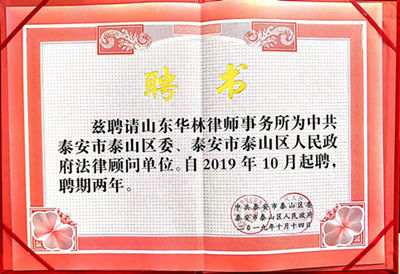 聘书
兹聘请山东华林律师事务所为中共
泰安市泰山区委、泰安市泰山区人民政
府法律顾问单位。自2019年10月起聘,
聘期两年。
中共泰安市泰山区委
泰安市泰山区人民政府
二〇一九年十月十四日